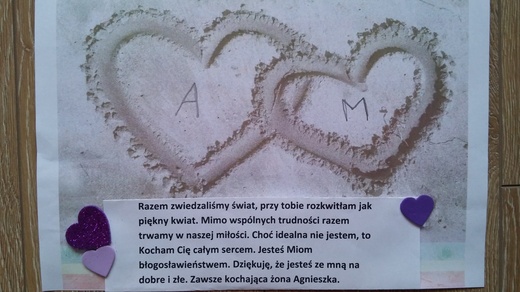 A M
Razem zwiedzaliśmy świat, przy tobie rozkwitłam jak
piękny kwiat. Mimo wspólnych trudności razem
trwamy w naszej miłości. Choć idealna nie jestem, to
Kocham Cię całym sercem. Jesteś Miom
błogosławieństwem. Dziękuję, że jesteś ze mną na
dobre i złe. Zawsze kochająca żona Agnieszka.